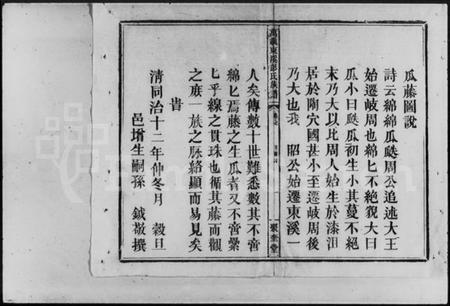 瓜藤圖說
詩云緜緜瓜瓞周公追述大王
始遷岐周也緜匕不絕貌大曰
瓜小曰瓞瓜初生小其蔓不絕
末乃大以比周人始生於漆沮
居於陶穴國甚小至遷岐周後
乃大也我 昭公始遷東溪一
萬載東溪彭氏族譜
聚奎堂
人矣傳數十世難悉數其不啻
綿匕焉藤之生瓜者又不啻纍
匕乎線之貫珠也循其藤而觀
之庶一族之脈絡顯而易見矣
旹
清同治十二年仲冬月 穀旦
邑增生嗣孫 鉞敬撰